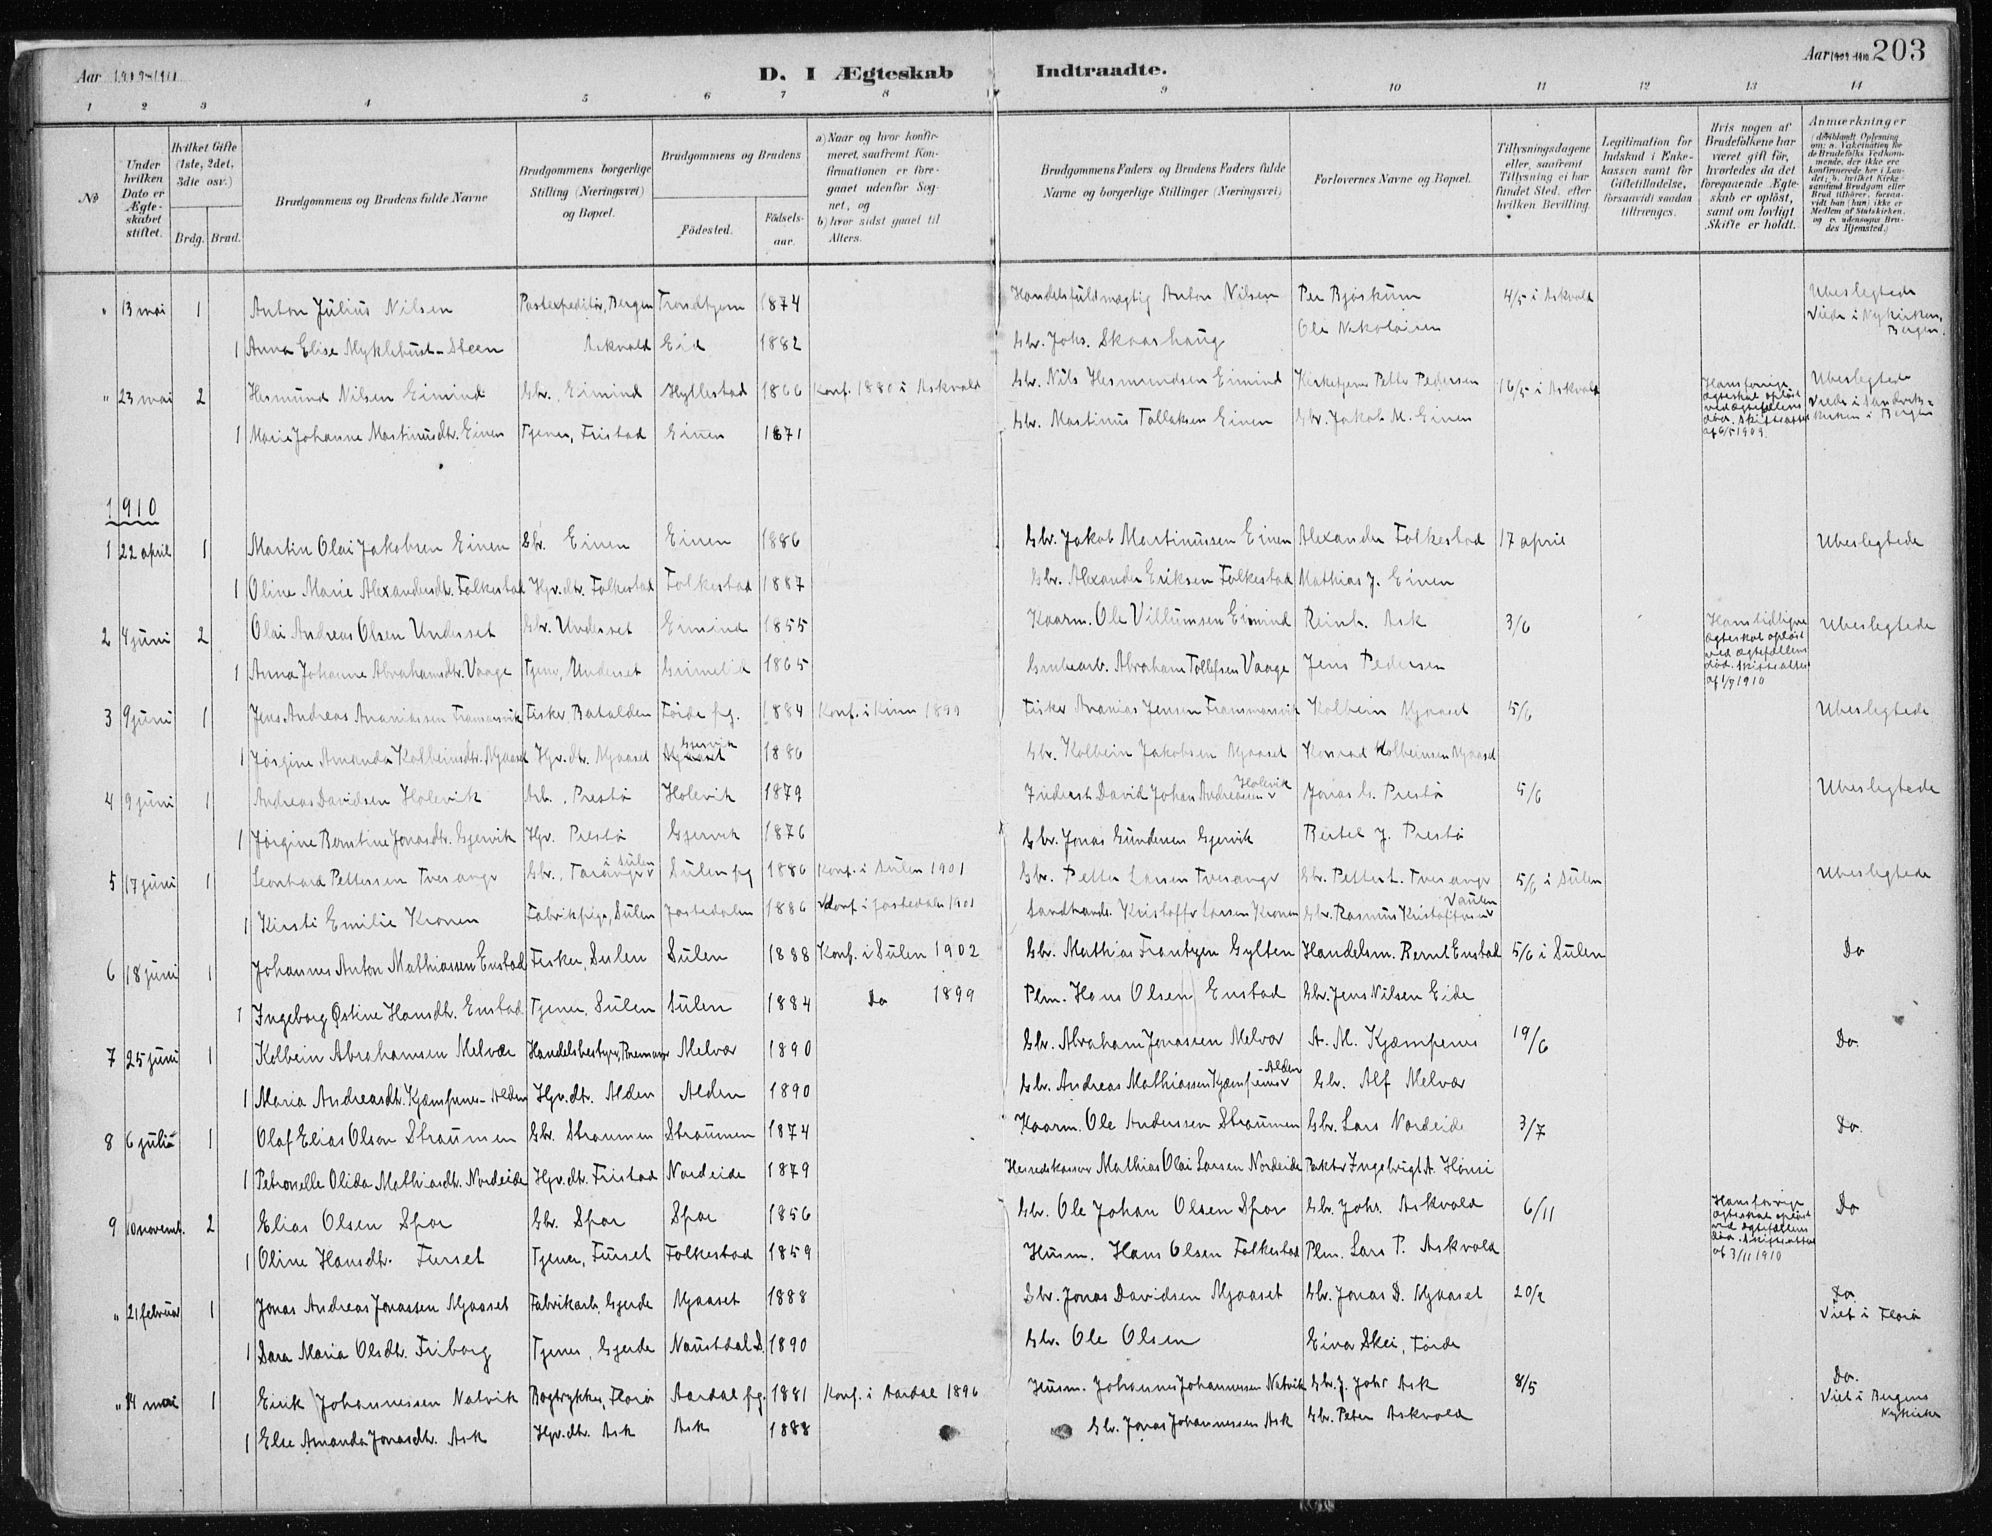 Aar 1909-1910
D. I Ægteskab Indtraadte.
Aar 1909-1910 203
1 2 3 4 5 6 7 8 9 10 11 12 13 14
No
Under hvilken Dato er Ægteskabet stiftet.
Hvilket Gifte (1ste, 2det, 3die osv.)
Brdg. Brud.
Brudgommens og Brudens fulde Navne
Brudgommens borgerlige Stilling (Næringsvei) og Bopæl.
Brudgommens og Brudens
Födested.
Födselsaar.
a) Naar og hvor konfirmeret, saafremt Konfirmationen er foregaaet udenfor Sognet, og
b) hvor sidst gaaet til Alters.
Brudgommens Faders og Brudens Faders fulde Navne og borgerlige Stillinger (Næringsvei)
Forlovernes Navne og Bopæl.
Tillysningsdagene eller, saafremt Tillysning ei har fundet Sted, efter hvilken Bevilling.
Legitimation for Indskud i Enkekassen samt for Giftetilladelse, forsaavidt saadan tiltrænges.
Hvis nogen af Brudefolkene har været gift för, hvorledes da det foregaaende Ægteskab er oplöst, samt om lovligt Skifte er holdt.
Anmærkninger
(deriblandt Oplysning om: a. Vakcination for de Brudefolks Vedkommende, der ikke ere konfirmerede her i Landet; b. hvilket Kirkesamfund Brudgom eller Brud tilhörer, forsaavidt han (hun) ikke er Medlem af Statskirken, og c. udensogns Brudes Hjemsted.)
" 13 mai 1 Anton Julius Nilsen Postexpeditör, Bergen Trondhjem 1874 Handelsfuldmægtig Anton Nilsen Per Bjöskum 4/5 i Askvold Ubeslegtede
Viede i Nykirken, Bergen.
1 Anna Elise Myklebust-Steen Askvold Eid 1882 Gbr. Johs. Skaashaug Ole Nikolaisen
" 23 mai 2 Hesmund Nilsen Eimind Gbr., Eimind Hyllestad 1866 Konf. 1880 i Askvold Gbr. Nils Hesmundsen Eimind Kirketjener Petter Pedersen 16/5 i Askvold Hans forrige ægteskab oplöst ved ægtefællens död. Skifteattest af 6/5 1909. Ubeslegtede
Viede i Sandvikskirken i Bergen
1 Marie Johanne Martinusdtr. Einen Tjener, Fristad Einen 1871 Gbr. Martinus Tollaksen Einen Gbr. Jakob M. Einen
1910
1 22 april 1 Martin Olai Jakobsen Einen Gbr. Einen Einen 1886 Gbr. Jakob Martinussen Einen Alexander Folkestad 17 april Ubeslegtede
1 Oline Marie Alexandersdtr. Folkestad Hgv. dtr. Folkestad Folkestad 1887 Gbr. Alexander Eriksen Folkestad Mathias J. Einen
2 4 juni 2 Olai Andreas Olsen Underset Gbr. Underset Eimind 1855 Kaarm. Ole Villumsen Eimind Reinh. Ask 3/6 Hans tidligere ægteskab oplöst ved ægtefællens död. Skifteattest af 1/4 1910 Ubeslegtede
1 Anna Johanne Abrahamsdtr. Vaage Tjener, Underset Grimelid 1865 Grubearb. Abraham Tollefsen Vaage Jens Pedersen
3 9 juni 1 Jens Andreas Ananiassen Fransmarsvik Fisker Batalden Förde pg. 1884 Konf. i Kinn 1899 Fisker Ananias Jensen Fransmarsvik Kolbein Mjaaset 5/6 Ubeslegtede
1 Jörgine Amanda Kolbeinsdtr. Mjaaset Hgv. dtr. Mjaaset 1886 Gbr. Kolbein Jakobsen Mjaaset Konrad Kolbeinsen Mjaaset
4 9 juni 1 Andreas Davidsen Holevik Arb., Prestö Holevik 1879 David Johan Andreassen Holevik Jonas G. Prestö 5/6 Ubeslegtede
1 Jörgine Berntine Jonasdtr. Gjervik Hgv. Prestö Gjervik 1876 Gbr. Jonas Gundersen Gjervik Bertel J. Prestö
5 17 juni 1 Leonhard Pettersen Tveranger Gbr., i Sulen Sulen pg 1886 Konf. i Sulen 1901 Gbr. Petter Larsen Tveranger Gbr. Petter L. Tveranger 5/6 i Sulen Ubeslegtede
1 Kirsti Emilie Kronen Fabrikpige, Sulen Jostedalen 1886 Konf. i Jostedalen 1901 Landhandl. Kristoffer Larsen Kronen Gbr. Rasmus Kristoffersen
6 18 juni 1 Johannes Anton Mathiassen Enstad Fisker, Sulen Sulen 1888 Konf. i Sulen 1902 Gbr. Mathias Frantzen Gylten Handelsm. Bernt Enstad 5/6 i Sulen Do
1 Ingeborg Østine Hansdtr. Enstad Tjener, Sulen Sulen 1884 Do 1899 Plm. Hans Olsen Enstad Gbr. Jens Nilsen Eide
7 25 juni 1 Kolbein Abrahamsen Melvær Handelsbestyrer, Melvær 1890 Gbr. Abraham Jonassen Melvær A. M. Kjæmpenes 19/6 Do.
1 Maria Andreasdtr. Kjæmpenes-Alden Hgv. dtr. Alden Alden 1890 Gbr. Andreas Mathiassen Kjæmpenes-Alden Gbr. Alf Melvær
8 6 juli 1 Olaf Elias Olson Straumen Gbr. Straumen Straumen 1874 Kaarm. Ole Anderssen Straumen Gbr. Lars Nordeide 3/7 Do.
1 Petronelle Olida Mathiasdtr. Nordeide Hgv. dtr. Fristad Nordeide 1879 Herredskasserer Mathias Olai Larsen Nordeide Ingebrigt A. Hönsi
9 10 novemb. 2 Elias Olsen Spor Gbr. Spor Spor 1856 Gbr. Ole Johan Olsen Spor Gbr. Johs. Askvold 6/11 Hans forrige ægteskab oplöst ved ægtefællens död. Skifteattest af 3/11 1910 Do
1 Oline Hansdtr. Furset Tjener, Furset Folkestad 1859 Husm. Hans Olsen Folkestad Plm. Lars P. Askvold
" 21 februar 1 Jonas Andreas Jonassen Mjaaset Fabrikarb., Gjerde Mjaaset 1888 Gbr. Jonas Davidsen Mjaaset Gbr. Jonas D. Mjaaset 20/2 Do.
Viet i Florö
1 Sara Maria Olsdtr. Friborg Tjener, Gjerde Naustdal S. 1890 Gbr. Ole Olsen Einar Skei, Förde
" 14 mai 1 Eirik Johannessen Natvik Bogtrykker, Florö Aardal pg. 1881 Konf. i Aardal 1896 Husm. Johannes Johannessen Natvik Gbr. J. Johs Ask 8/5 Do.
Viet i Bergens Nykirke
1 Else Amanda Jonasdtr. Ask Hgv. dtr. Ask Ask 1888 Gbr. Jonas Johannessen Ask Gbr. Peter Askvold